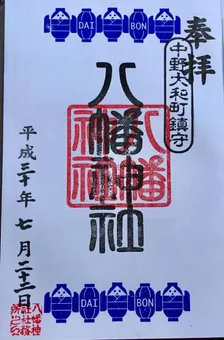 DAI BON
奉拝
中野大和町鎮守
八幡神社
八幡神社
平成三十年 七月二十二日
八幡神社
DAI BON